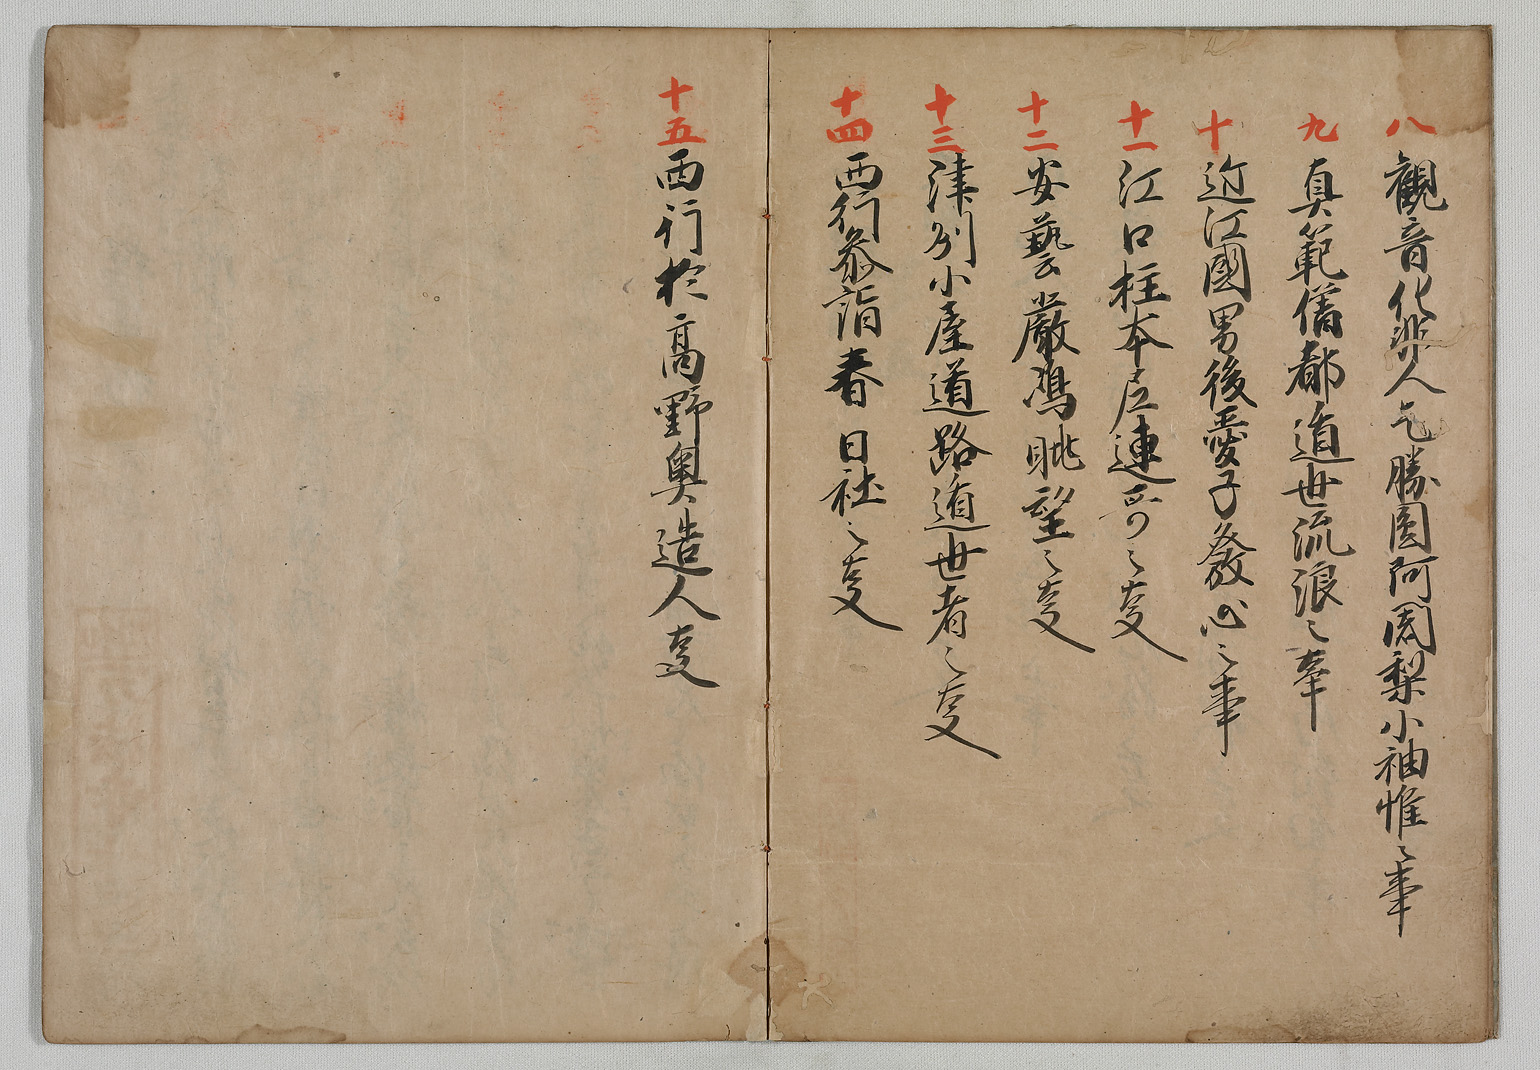 八 観音化非人乞勝園阿闍梨小袖帷之事
九 真範僧都遁世流浪之事
十 近江國男後憂子發心之事
十一 江口柱本尼連哥之事
十二 安藝嚴嶋眺望之事
十三 津列小屋道路遁世者之事
十四 西行参詣春日社之事
十五 西行於高野奥造人事